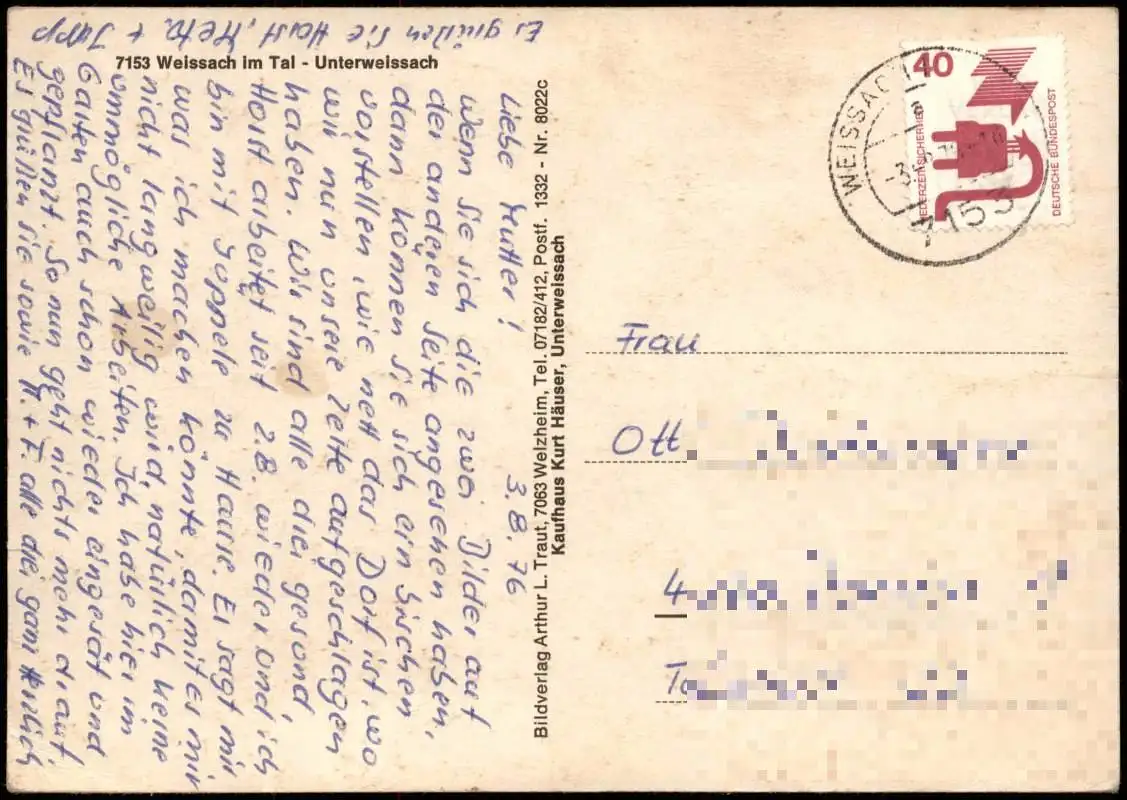 7153 Weissach im Tal - Unterweissach
3.8.76
Liebe Mutter!
Wenn sie sich die zwei Bilder auf
der anderen Seite angesehen haben,
dann können sie sich ein bischen
vorstellen, wie nett das Dorf ist, wo
wir nun unsere Zelte aufgeschlagen
haben. Wir sind alle drei gesund,
Horst arbeitet seit 2.8. wieder und ich
bin mit Juppele zu Hause. Er sagt mir
was ich machen könnte, damit es mir
nicht langweilig wird, natürlich keine
unmögliche Arbeiten. Ich habe hier im
Garten auch schon wieder eingesät und
gepflanzt. So nun geht nichts mehr drauf.
Es grüßen sie sowie H. + F. alle drei ganz herzlich
Es grüßen sie Horst, + Jupp
Bildverlag Arthur L. Traut, 7063 Welzheim, Tel. 07182/412, Postf. 1332 - Nr. 8022c
Kaufhaus Kurt Häuser, Unterweissach
40
JEDERZEIT SICHERHEIT
DEUTSCHE BUNDESPOST
WEISSACH
7153
Frau
Ott
4